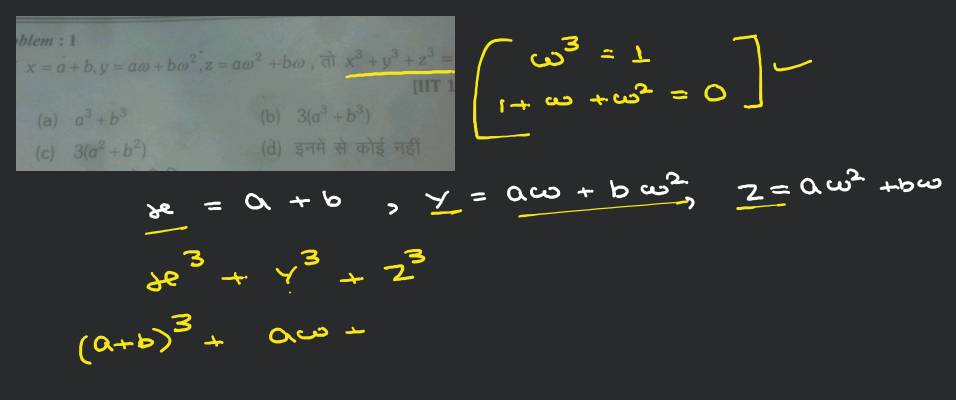 blem : 1
x = a + b, y = aω + bω², z = aω² + bω , तो x³ + y³ + z³ =
[IIT 1
(a) a³ + b³
(b) 3(a³ + b³)
(c) 3(a² + b²)
(d) इनमें से कोई नहीं
ω³ = 1
1 + ω + ω² = 0
x = a + b , y = aω + bω², z = aω² + bω
x³ + y³ + z³
(a+b)³ + aω +